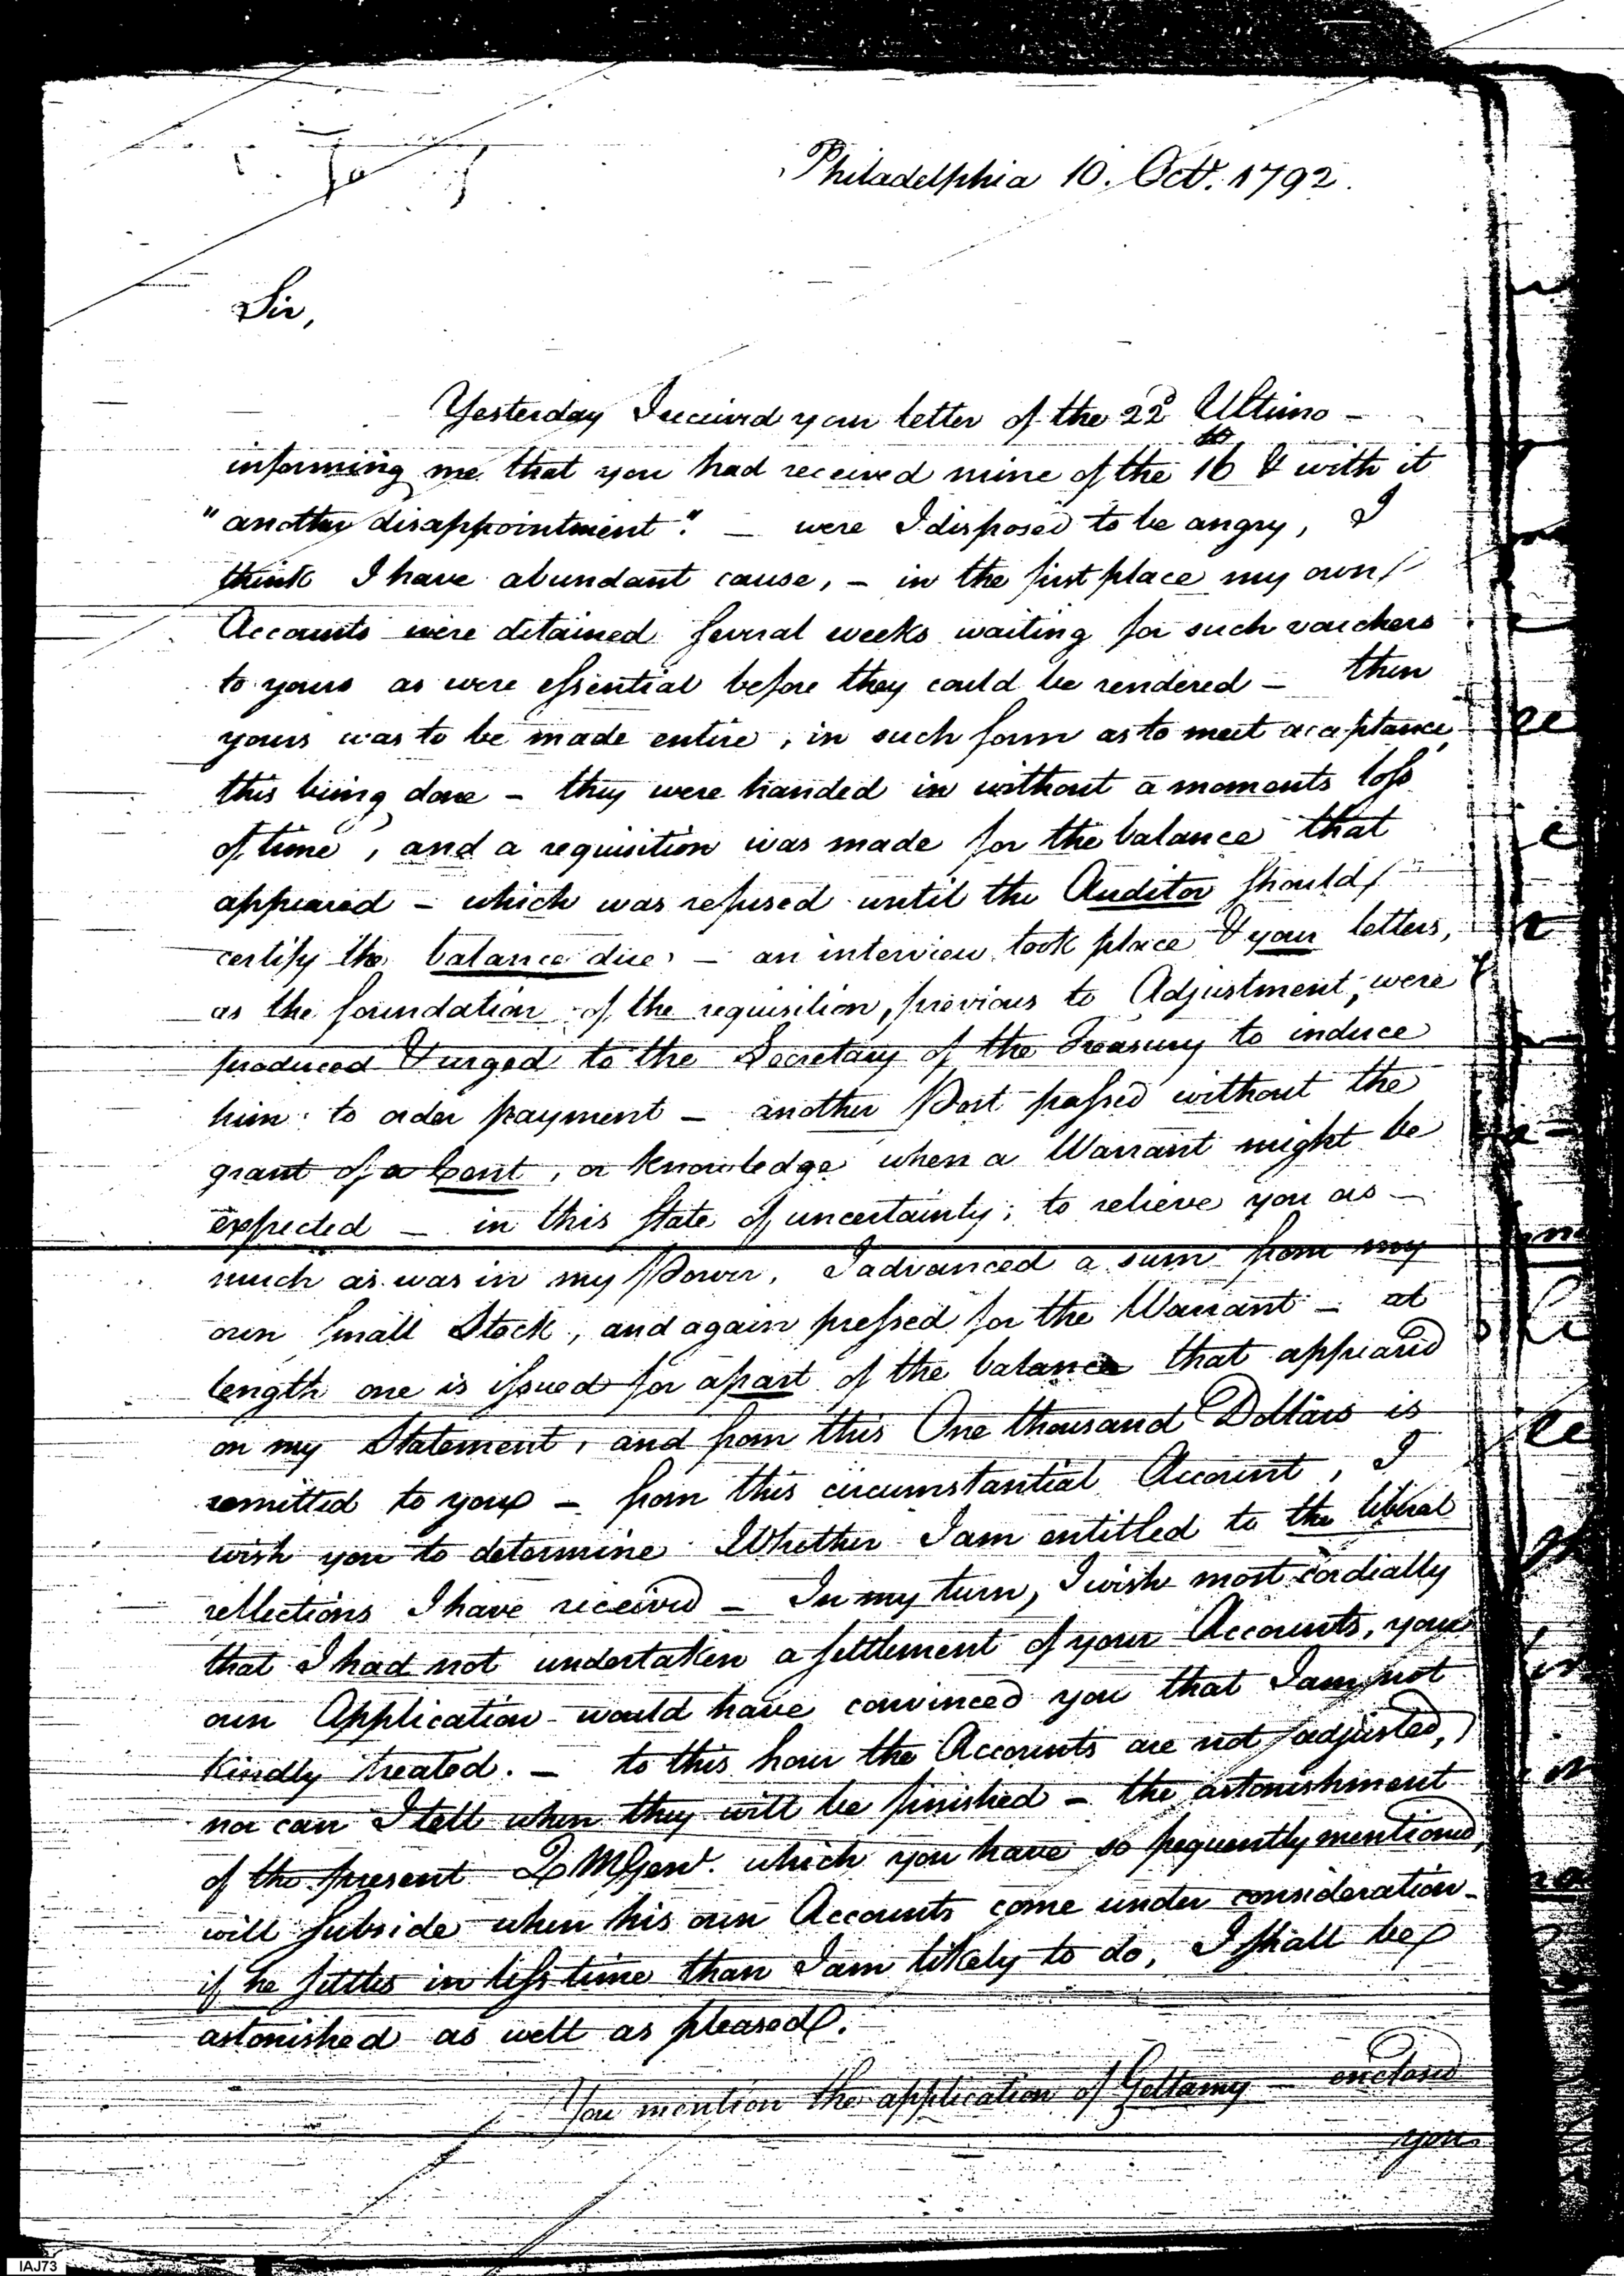 Philadelphia 10. Octr. 1792.
Sir,
Yesterday I received your letter of the 22d Ultimo -
informing me that you had received mine of the 16th & with it
"another disappointment". - were I disposed to be angry, I
think I have abundant cause, - in the first place my own
Accounts were detained several weeks waiting for such vouchers
to yours as were essential before they could be rendered - then
yours was to be made entire, in such form as to meet acceptance,
this being done - they were handed in without a moments loss
of time, and a requisition was made for the balance that
appeared - which was refused until the Auditor should
certify the balance due, - an interview took place & your letters,
as the foundation of the requisition, previous to Adjustment, were
produced & urged to the Secretary of the Treasury to induce
him to order payment - another Post passed without the
grant of a Cent, or knowledge when a Warrant might be
expected - in this state of uncertainty, to relieve you as -
much as was in my Power, I advanced a sum from my
own small Stock, and again pressed for the Warrant - at
length one is issued for a part of the balance that appeared
on my Statement, and from this One thousand Dollars is
remitted to you - from this circumstantial Account, I
wish you to determine Whether I am entitled to the liberal
reflections I have received - In my turn, I wish most cordially
that I had not undertaken a settlement of your Accounts, your
own Application would have convinced you that I am not
kindly treated. - to this hour the Accounts are not adjusted,
nor can I tell when they will be finished - the astonishment
of the present Q M Genl. which you have so frequently mentioned,
will subside when his own Accounts come under consideration -
if he settles in less time than I am likely to do, I shall be
astonished as well as pleased.
You mention the application of Gellamy - enclosed
you
IAJ73